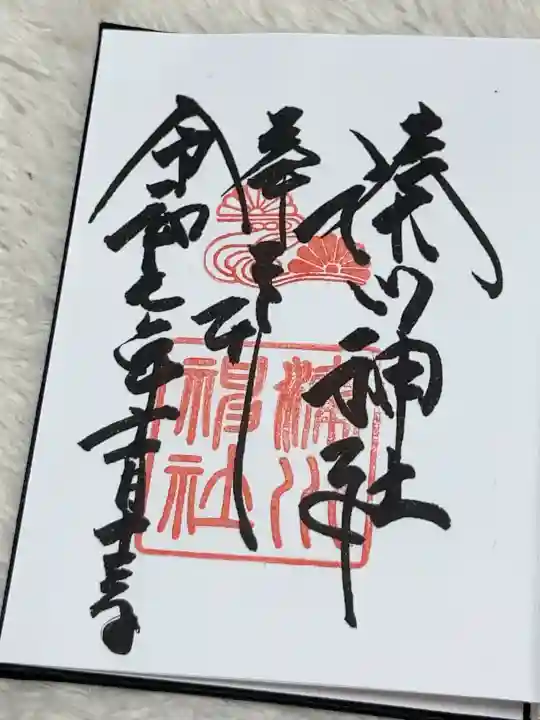 湊川神社
奉拝
令和七年十一月十三日
湊川
神社